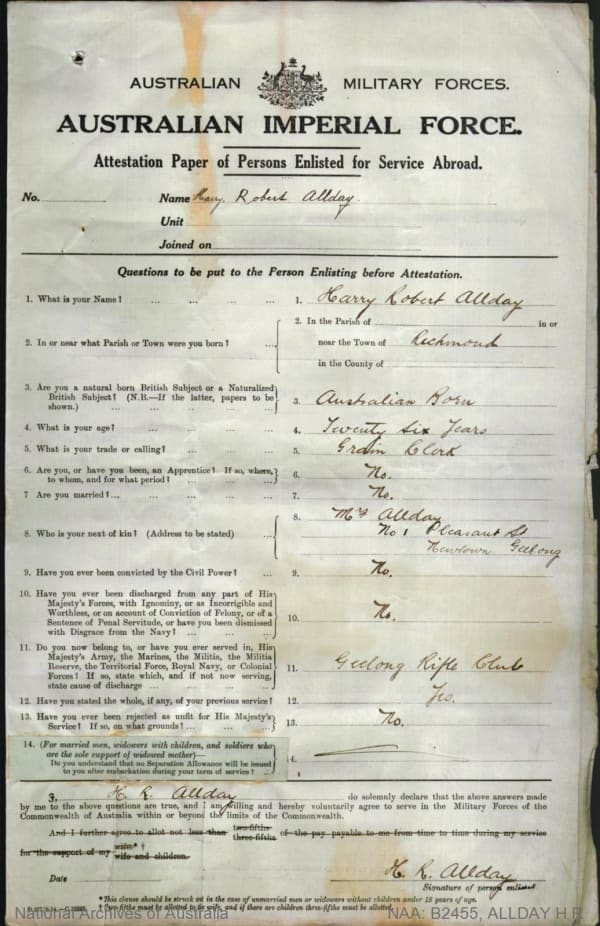 AUSTRALIAN MILITARY FORCES.
AUSTRALIAN IMPERIAL FORCE.
Attestation Paper of Persons Enlisted for Service Abroad.
No. Name Harry Robert Allday.
Unit
Joined on
Questions to be put to the Person Enlisting before Attestation.
1. What is your Name? ... ... ... ... 1. Harry Robert Allday
2. In or near what Parish or Town were you born? ... 2. In the Parish of in or
near the Town of Richmond
in the County of
3. Are you a natural born British Subject or a Naturalized
British Subject? (N.B.—If the latter, papers to be
shown.) ... ... ... ... 3. Australian Born
4. What is your age? ... ... ... ... 4. Twenty Six Years
5. What is your trade or calling? ... ... ... 5. Grain Clerk
6. Are you, or have you been, an Apprentice? If so, where,
to whom, and for what period? ... ... ... 6. No.
7 Are you married? ... ... ... ... 7. No.
8. Who is your next of kin? (Address to be stated) ... 8. Mrs Allday
No 1 Pleasant St
Newtown Geelong
9. Have you ever been convicted by the Civil Power? ... 9. No.
10. Have you ever been discharged from any part of His
Majesty's Forces, with Ignominy, or as Incorrigible and
Worthless, or on account of Conviction of Felony, or of a
Sentence of Penal Servitude, or have you been dismissed
with Disgrace from the Navy? ... ... ... 10. No.
11. Do you now belong to, or have you ever served in, His
Majesty's Army, the Marines, the Militia, the Militia
Reserve, the Territorial Force, Royal Navy, or Colonial
Forces? If so, state which, and if not now serving,
state cause of discharge ... ... ... 11. Geelong Rifle Club
12. Have you stated the whole, if any, of your previous service? 12. Yes.
13. Have you ever been rejected as unfit for His Majesty's
Service? If so, on what grounds? ... ... ... 13. No.
14. (For married men, widowers with children, and soldiers who
are the sole support of widowed mother)—
Do you understand that no Separation Allowance will be issued
to you after embarkation during your term of service? ... 4.
I, H. R. Allday do solemnly declare that the above answers made
by me to the above questions are true, and I am willing and hereby voluntarily agree to serve in the Military Forces of the
Commonwealth of Australia within or beyond the limits of the Commonwealth.
And I further agree to allot not less than two-fifths three-fifths of the pay payable to me from time to time during my service
for the support of my wife* † wife and children.
H. R. Allday
Date Signature of person enlisted
*This clause should be struck out in the case of unmarried men or widowers without children under 18 years of age.
† Two-fifths must be allotted to the wife, and if there are children three-fifths must be allotted.
National Archives of Australia NAA: B2455, ALLDAY H R